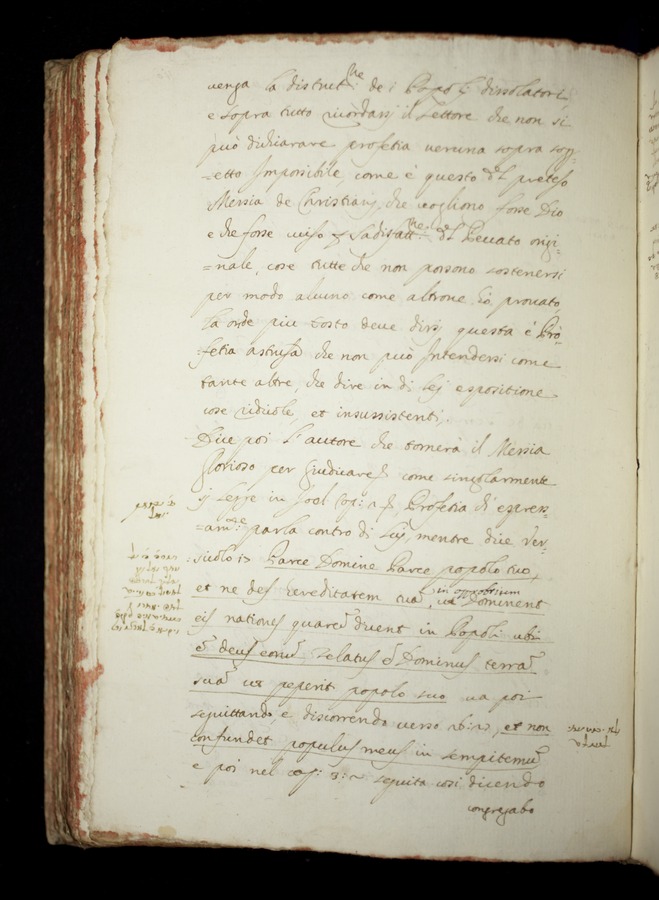 venga la distrutt:ne de i Popoli dissolatori
e sopra tutto ricordarsi il Lettore che non si
può dichiarare profetia veruna sopra sog-
=etto Impossibile, come è questo del preteso
Messia de Christiani, che vogliono fosse Dio
e che fosse ucciso per sadisfatt:ne del Peccato origi-
=nale, cose tutte che non possono sostenersi
per modo alcuno come altrove hò provato,
la onde più tosto deve dirsi questa è Pro-
fetia astrusa che non può Intendersi come
tante altre, che dire in di lei espositione
cose ridicole, et insussistenti,
Dice poi l'autore che tornerà il Messia
Glorioso per Giudicare come singolarmente
si legge in Joel Cap: Profetia ch'espres-
=am:te parla contro di lui, mentre dice Ver-
sicolo 17 Parce Domine Parce popolo tuo,
et ne des hereditatem tuã in opprobrium ut Dominent
eis nationes quare dicent in Popoli ubi
è deus eorum Zelatus è Dominus terrã
suã et pepercit popolo suo va poi
seguittando, e discorrendo verso et non
confundet populus meus in sempiternũ
e poi nel cap: 3: seguita così dicendo
congregabo